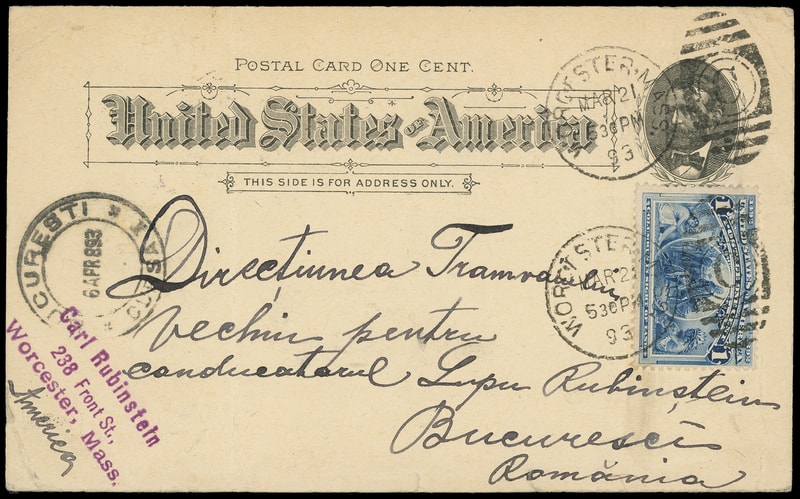 POSTAL CARD ONE CENT.
United States of America
THIS SIDE IS FOR ADDRESS ONLY.
WORCESTER, MASS.
MAR 21
530PM
93
WORCESTER
MAR 21
530PM
93
1
1
BUCURESTI
6 APR 893
Direcțiunea Tramvaiului
vechiu pentru
conducatorul Lupu Rubinștein
Bucuresci
România
Carl Rubinstein
238 Front St.,
Worcester, Mass.
America